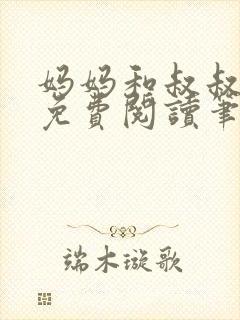 妈妈和叔叔
免費閱讀筆
端木璇歌